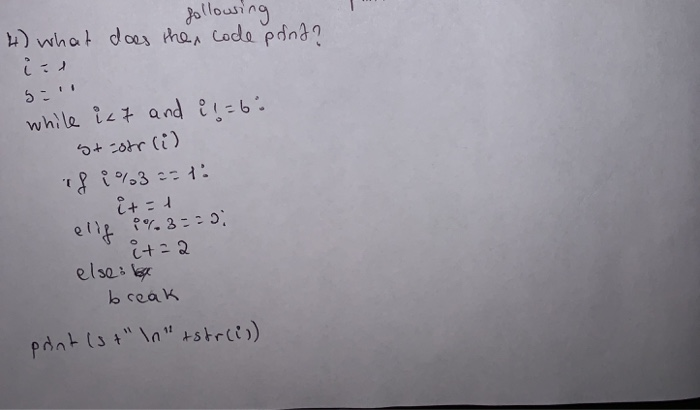 following
4) what does the code print?
i = 1
s = ''
while i < 7 and i != 6:
s+ =str(i)
if i%3 == 1:
i+ = 1
elif i% 3 = = 0:
i+ = 2
else:
break
print (s +" \n" +str(i))